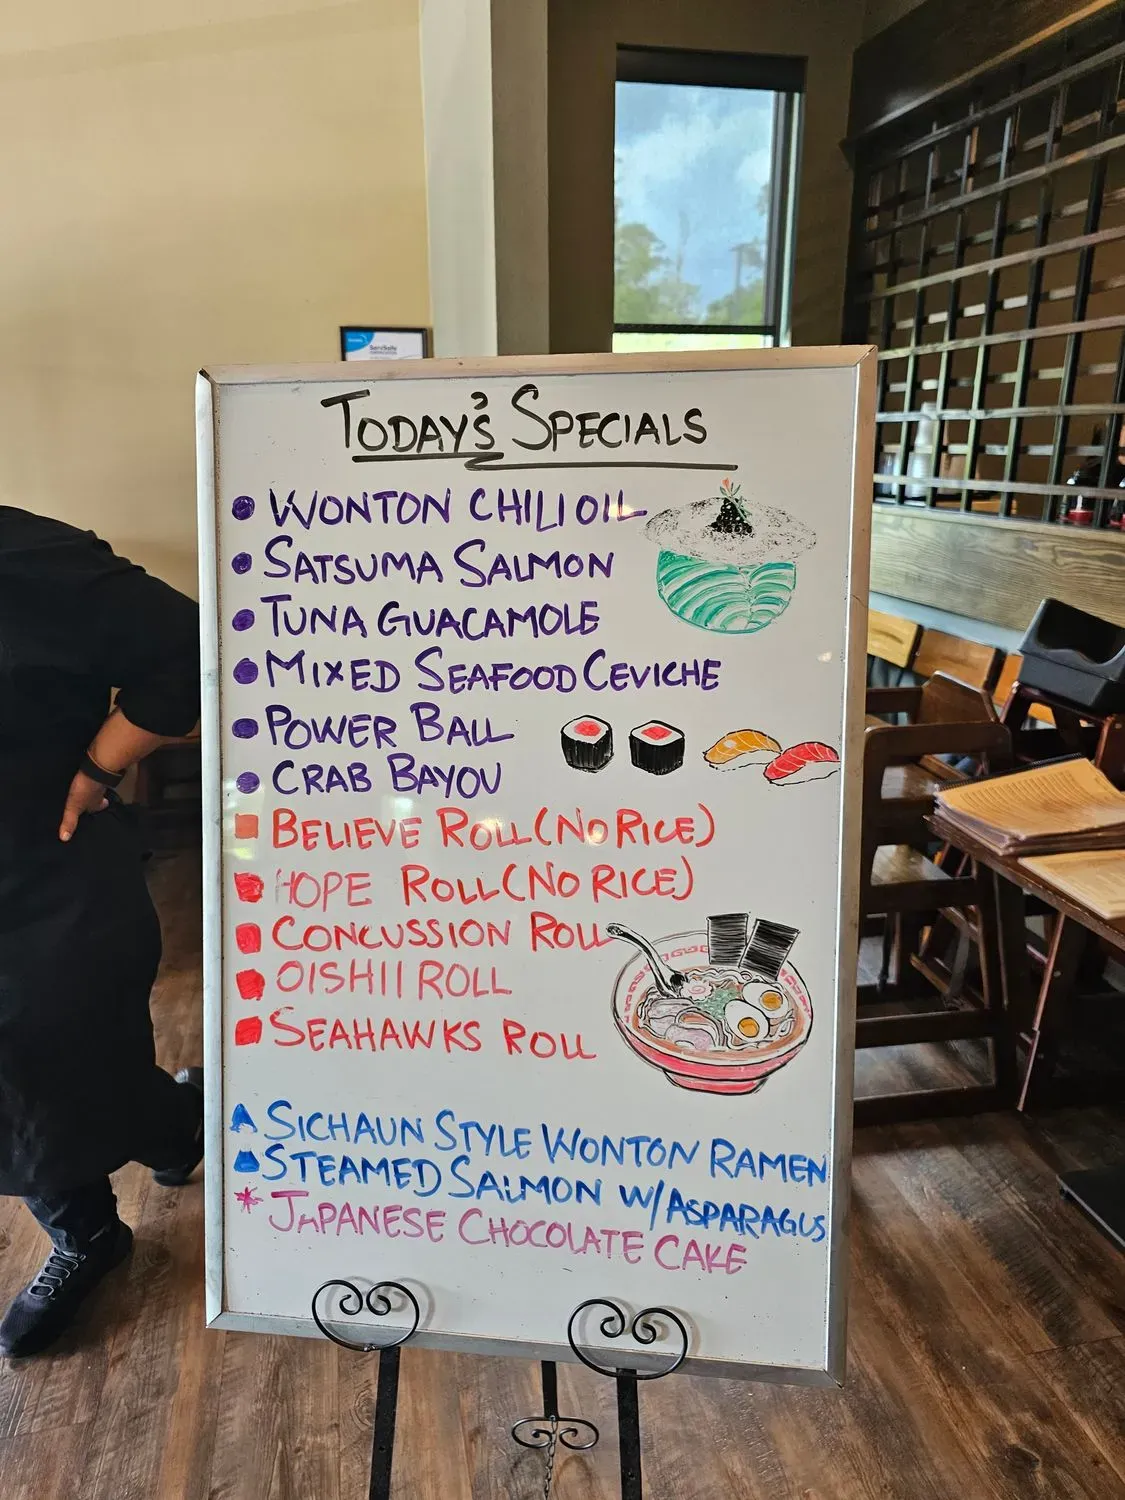 ServSafe
TODAY'S SPECIALS
WONTON CHILI OIL
SATSUMA SALMON
TUNA GUACAMOLE
MIXED SEAFOOD CEVICHE
POWER BALL
CRAB BAYOU
BELIEVE ROLL (NO RICE)
HOPE ROLL (NO RICE)
CONCUSSION ROLL
OISHII ROLL
SEAHAWKS ROLL
SICHAUN STYLE WONTON RAMEN
STEAMED SALMON W/ASPARAGUS
* JAPANESE CHOCOLATE CAKE